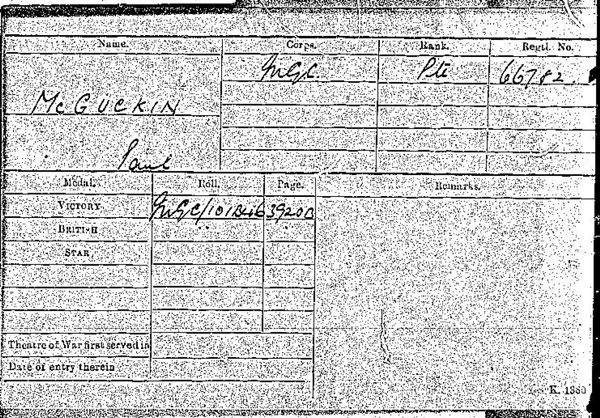 Name. Corps. Rank. Regtl. No.
MGC Pte 66782.
McGUCKIN
Paul
Medal. Roll. Page. Remarks.
VICTORY MGC/101B46 3920
BRITISH
STAR
Theatre of War first served in
Date of entry therein
K. 1380